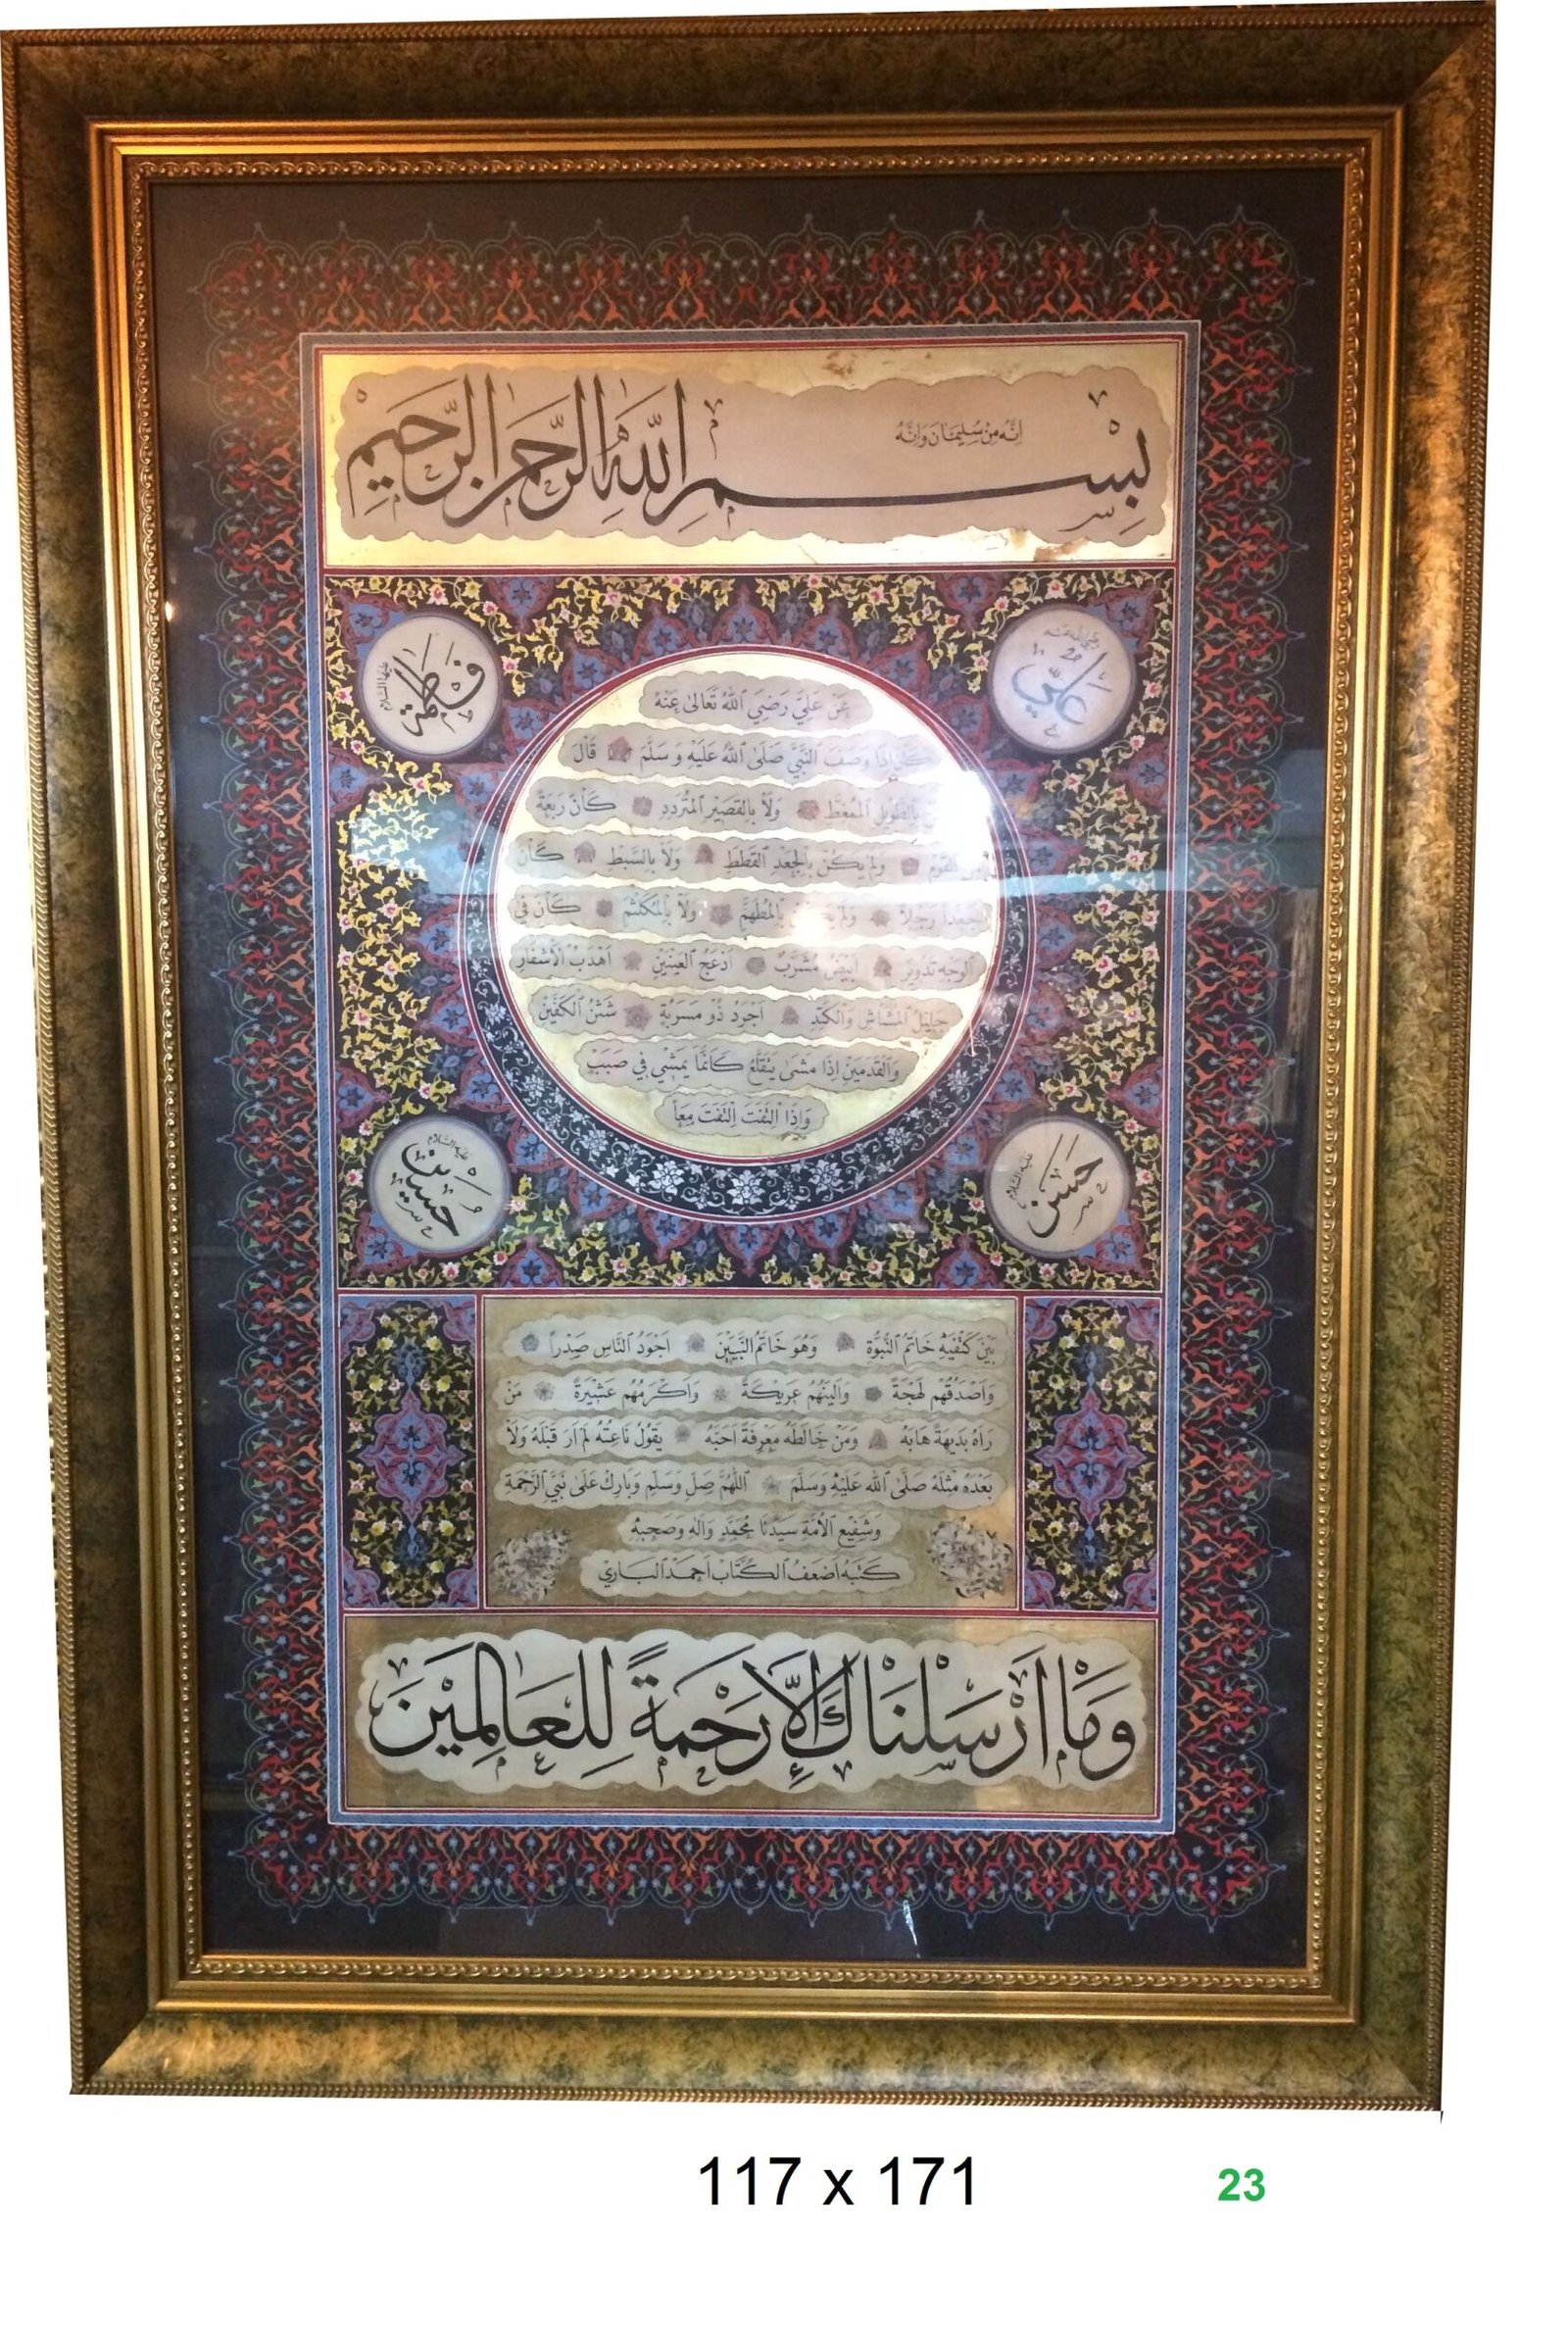 اِنَّهُ مِنْ سُلِيْمَانَ وَاِنَّهُ
بِسْمِ اللّٰهِ الرَّحْمٰنِ الرَّحِيْمِ
رَضِيَ اللّٰهُ عَنْهُ
عَلِيّ
فَاطِمَة
عَلَيْهَا السَّلَام
عَنْ عَلِيٍّ رَضِيَ اللّٰهُ تَعَالٰى عَنْهُ
كَانَ اِذَا وَصَفَ النَّبِيَّ صَلَّى اللّٰهُ عَلَيْهِ وَسَلَّمَ قَالَ
بِالطَّوِيْلِ الْمُمَّغِطِ وَلَا بِالْقَصِيْرِ الْمُتَرَدِّدِ كَانَ رَبْعَةً
الْقَوْمِ وَلَمْ يَكُنْ بِالْجَعْدِ الْقَطَطِ وَلَا بِالسَّبِطِ كَانَ
جَعْدًا رَجِلًا وَلَمْ بِالْمُطَهَّمِ وَلَا بِالْمُكَلْثَمِ كَانَ فِي
الْوَجْهِ تَدْوِيْرٌ اَبْيَضُ مُشْرَبٌ اَدْعَجُ الْعَيْنَيْنِ اَهْدَبُ الْاَشْفَارِ
جَلِيْلُ الْمُشَاشِ وَالْكَتَدِ اَجْرَدُ ذُوْ مَسْرُبَةٍ شَثْنُ الْكَفَّيْنِ
وَالْقَدَمَيْنِ اِذَا مَشٰى يَتَقَلَّعُ كَاَنَّمَا يَمْشِيْ فِي صَبَبٍ
وَاِذَا الْتَفَتَ اِلْتَفَتَ مَعًا
حَسَن
عَلَيْهِ السَّلَام
حُسَيْن
عَلَيْهِ السَّلَام
بَيْنَ كَتْفَيْهِ خَاتَمُ النُّبُوَّةِ وَهُوَ خَاتَمُ النَّبِيّيْنَ اَجْوَدُ النَّاسِ صَدْرًا
وَاَصْدَقُهُمْ لَهْجَةً وَاَلْيَنُهُمْ عَرِيْكَةً وَاَكْرَمُهُمْ عَشِيْرَةً مَنْ
رَاٰهُ بَدِيْهَةً هَابَهُ وَمَنْ خَالَطَهُ مَعْرِفَةً اَحَبَّهُ يَقُوْلُ نَاعِتُهُ لَمْ اَرَ قَبْلَهُ وَلَا
بَعْدَهُ مِثْلَهُ صَلَّى اللّٰه عَلَيْهِ وَسَلَّمَ اَللّٰهُمَّ صَلِّ وَسَلِّمْ وَبَارِكْ عَلٰى نَبِيِّ الرَّحْمَةِ
وَشَفِيْعِ الْاُمَّةِ سَيِّدِنَا مُحَمَّدٍ وَاٰلِهِ وَصَحْبِهِ
كَتَبَهُ اَضْعَفُ الْكُتَّابْ اَحْمَدْ الْبَارِي
وَمَا اَرْسَلْنَاكَ اِلَّا رَحْمَةً لِلْعَالَمِيْنَ
117 x 171
23